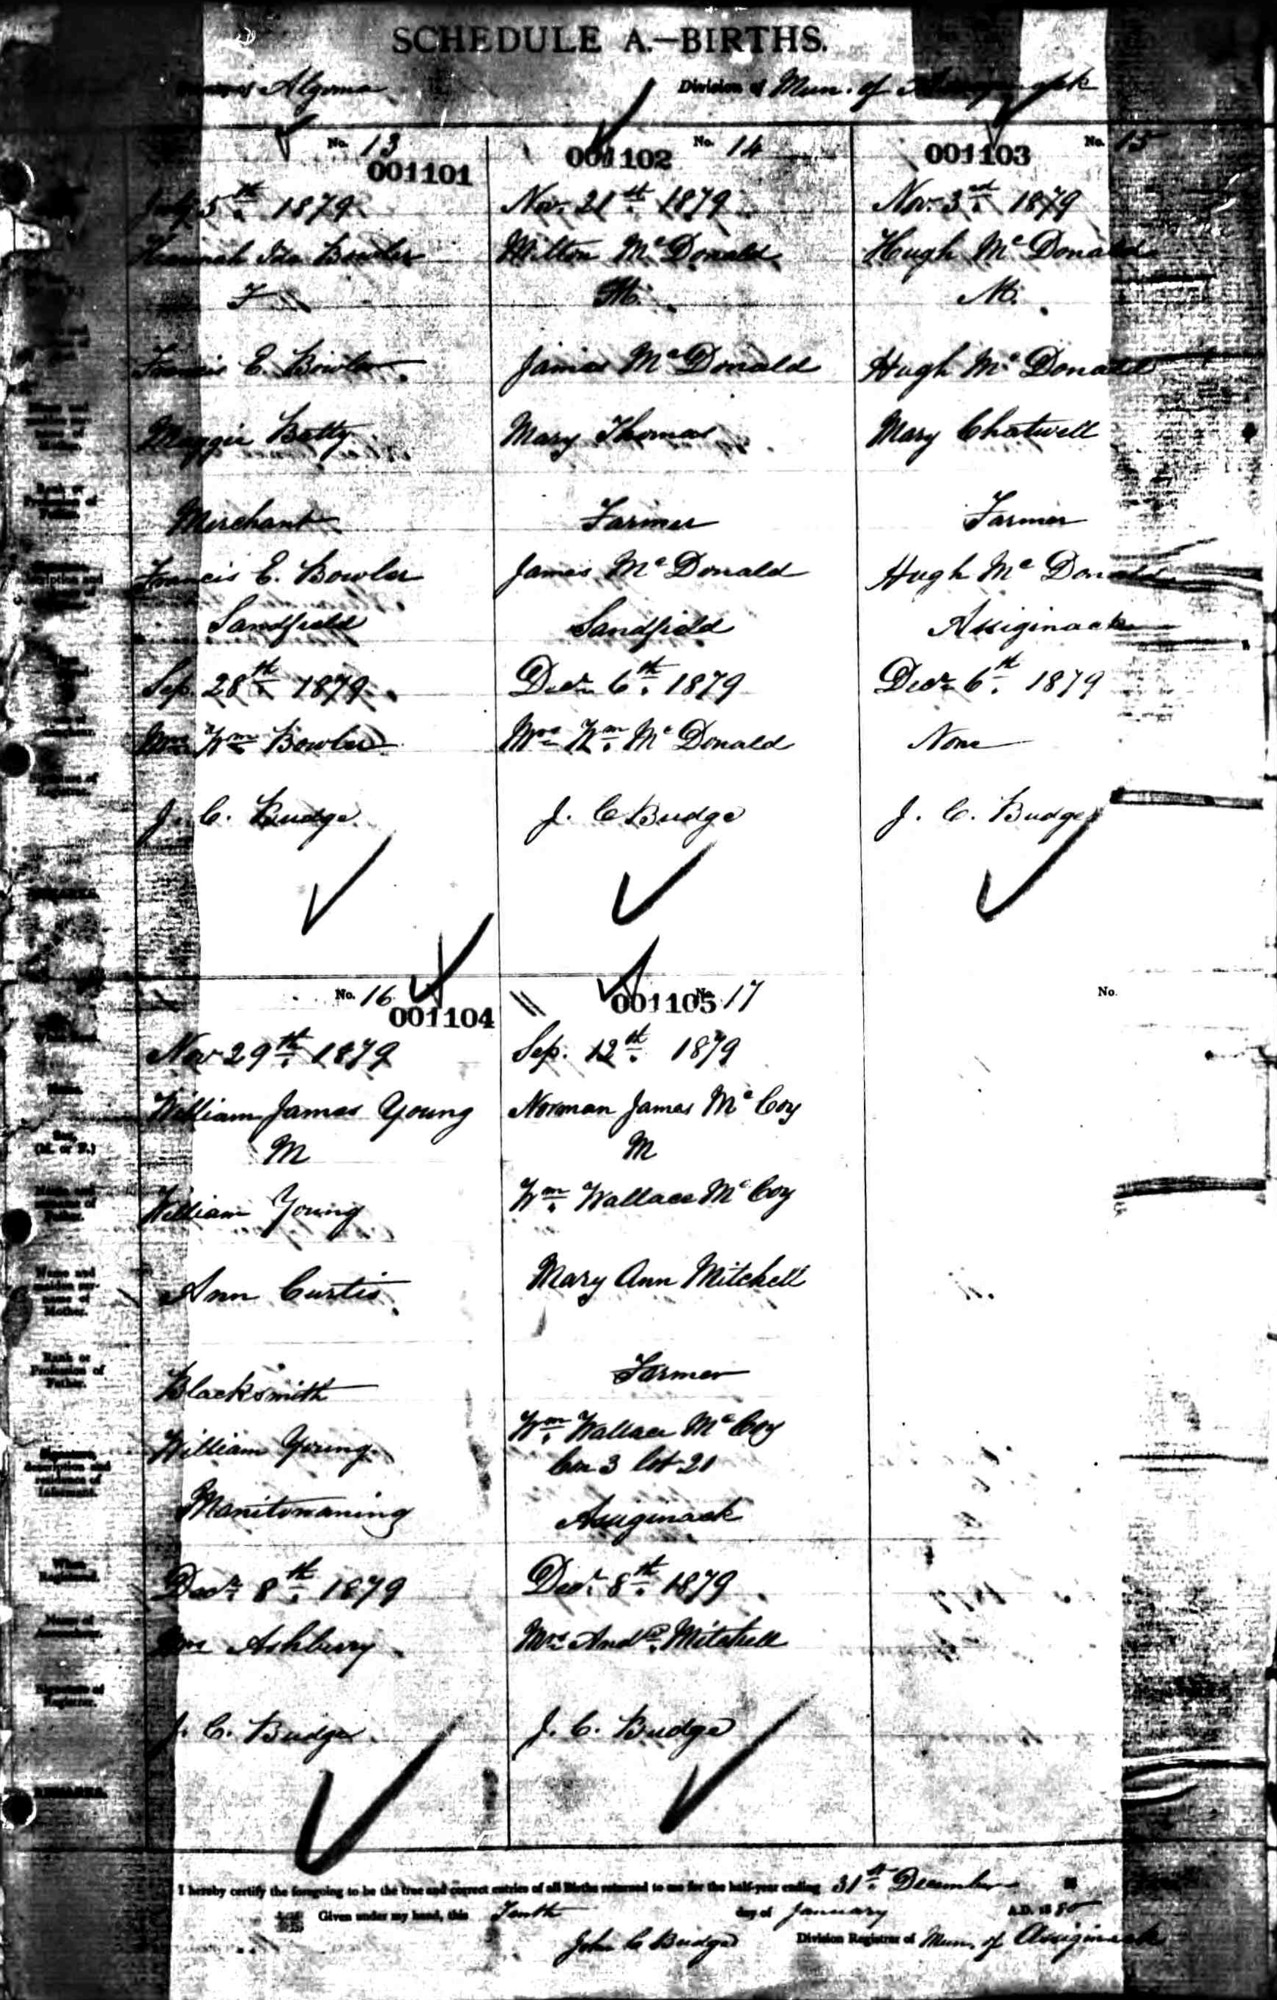 SCHEDULE A.—BIRTHS.
County of Algoma Division of Mun. of Assiginack
No. 13
001101
July 5th 1879
Hannah Ida Bowler
F
Francis E. Bowler
Maggie Batty
Merchant
Francis E. Bowler
Sandfield
Sep. 28th 1879
Mrs Wm Bowler
J. C. Budge
001102
No. 14
Nov. 21st 1879
Milton McDonald
M.
James McDonald
Mary Thomas
Farmer
James McDonald
Sandfield
Decr 6th 1879
Mrs Wm McDonald
J. C Budge
001103
No. 15
Nov. 3rd 1879
Hugh McDonald
M.
Hugh McDonald
Mary Chatwell
Farmer
Hugh McDonald
Assiginack
Decr 6th 1879
None
J. C. Budge
When Born.
Name.
Sex, (M. or F.)
Name and surname of Father.
Name and maiden surname of Mother.
Rank or Profession of Father.
Signature, description and residence of Informant.
When Registered.
Name of Accoucheur.
Signature of Registrar.
REMARKS.
No. 16
001104
Nov 29th 1879
William James Young
M
William Young
Ann Curtis
Blacksmith
William Young
Manitowaning
Decr 8th 1879
Mrs Ashbury
J. C. Budge
001105
No. 17
Sep. 12th 1879
Norman James McCoy
M
Wm Wallace McCoy
Mary Ann Mitchell
Farmer
Wm Wallace McCoy
Con 3 lot 21
Assiginack
Decr 8th 1879
Mrs Andw Mitchell
J. C. Budge
No.
I hereby certify the foregoing to be the true and correct entries of all Births returned to me for the half-year ending 31st December
Given under my hand, this Tenth day of January A.D. 1880
John C Budge Division Registrar of Mun. of Assiginack